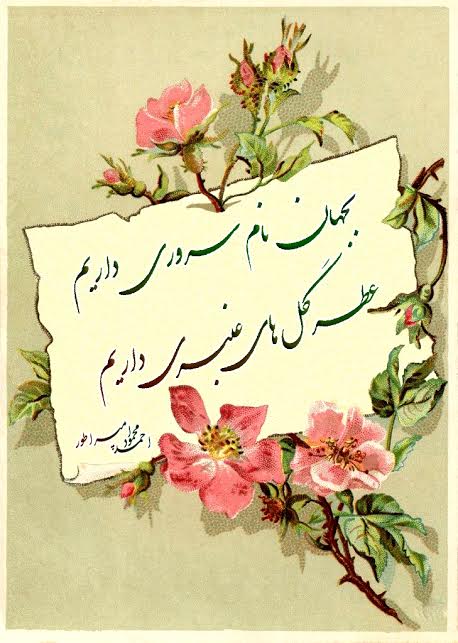 بجهان نام سروری داریم
عطر گل های عنبری داریم
احمد محمود امپراطور